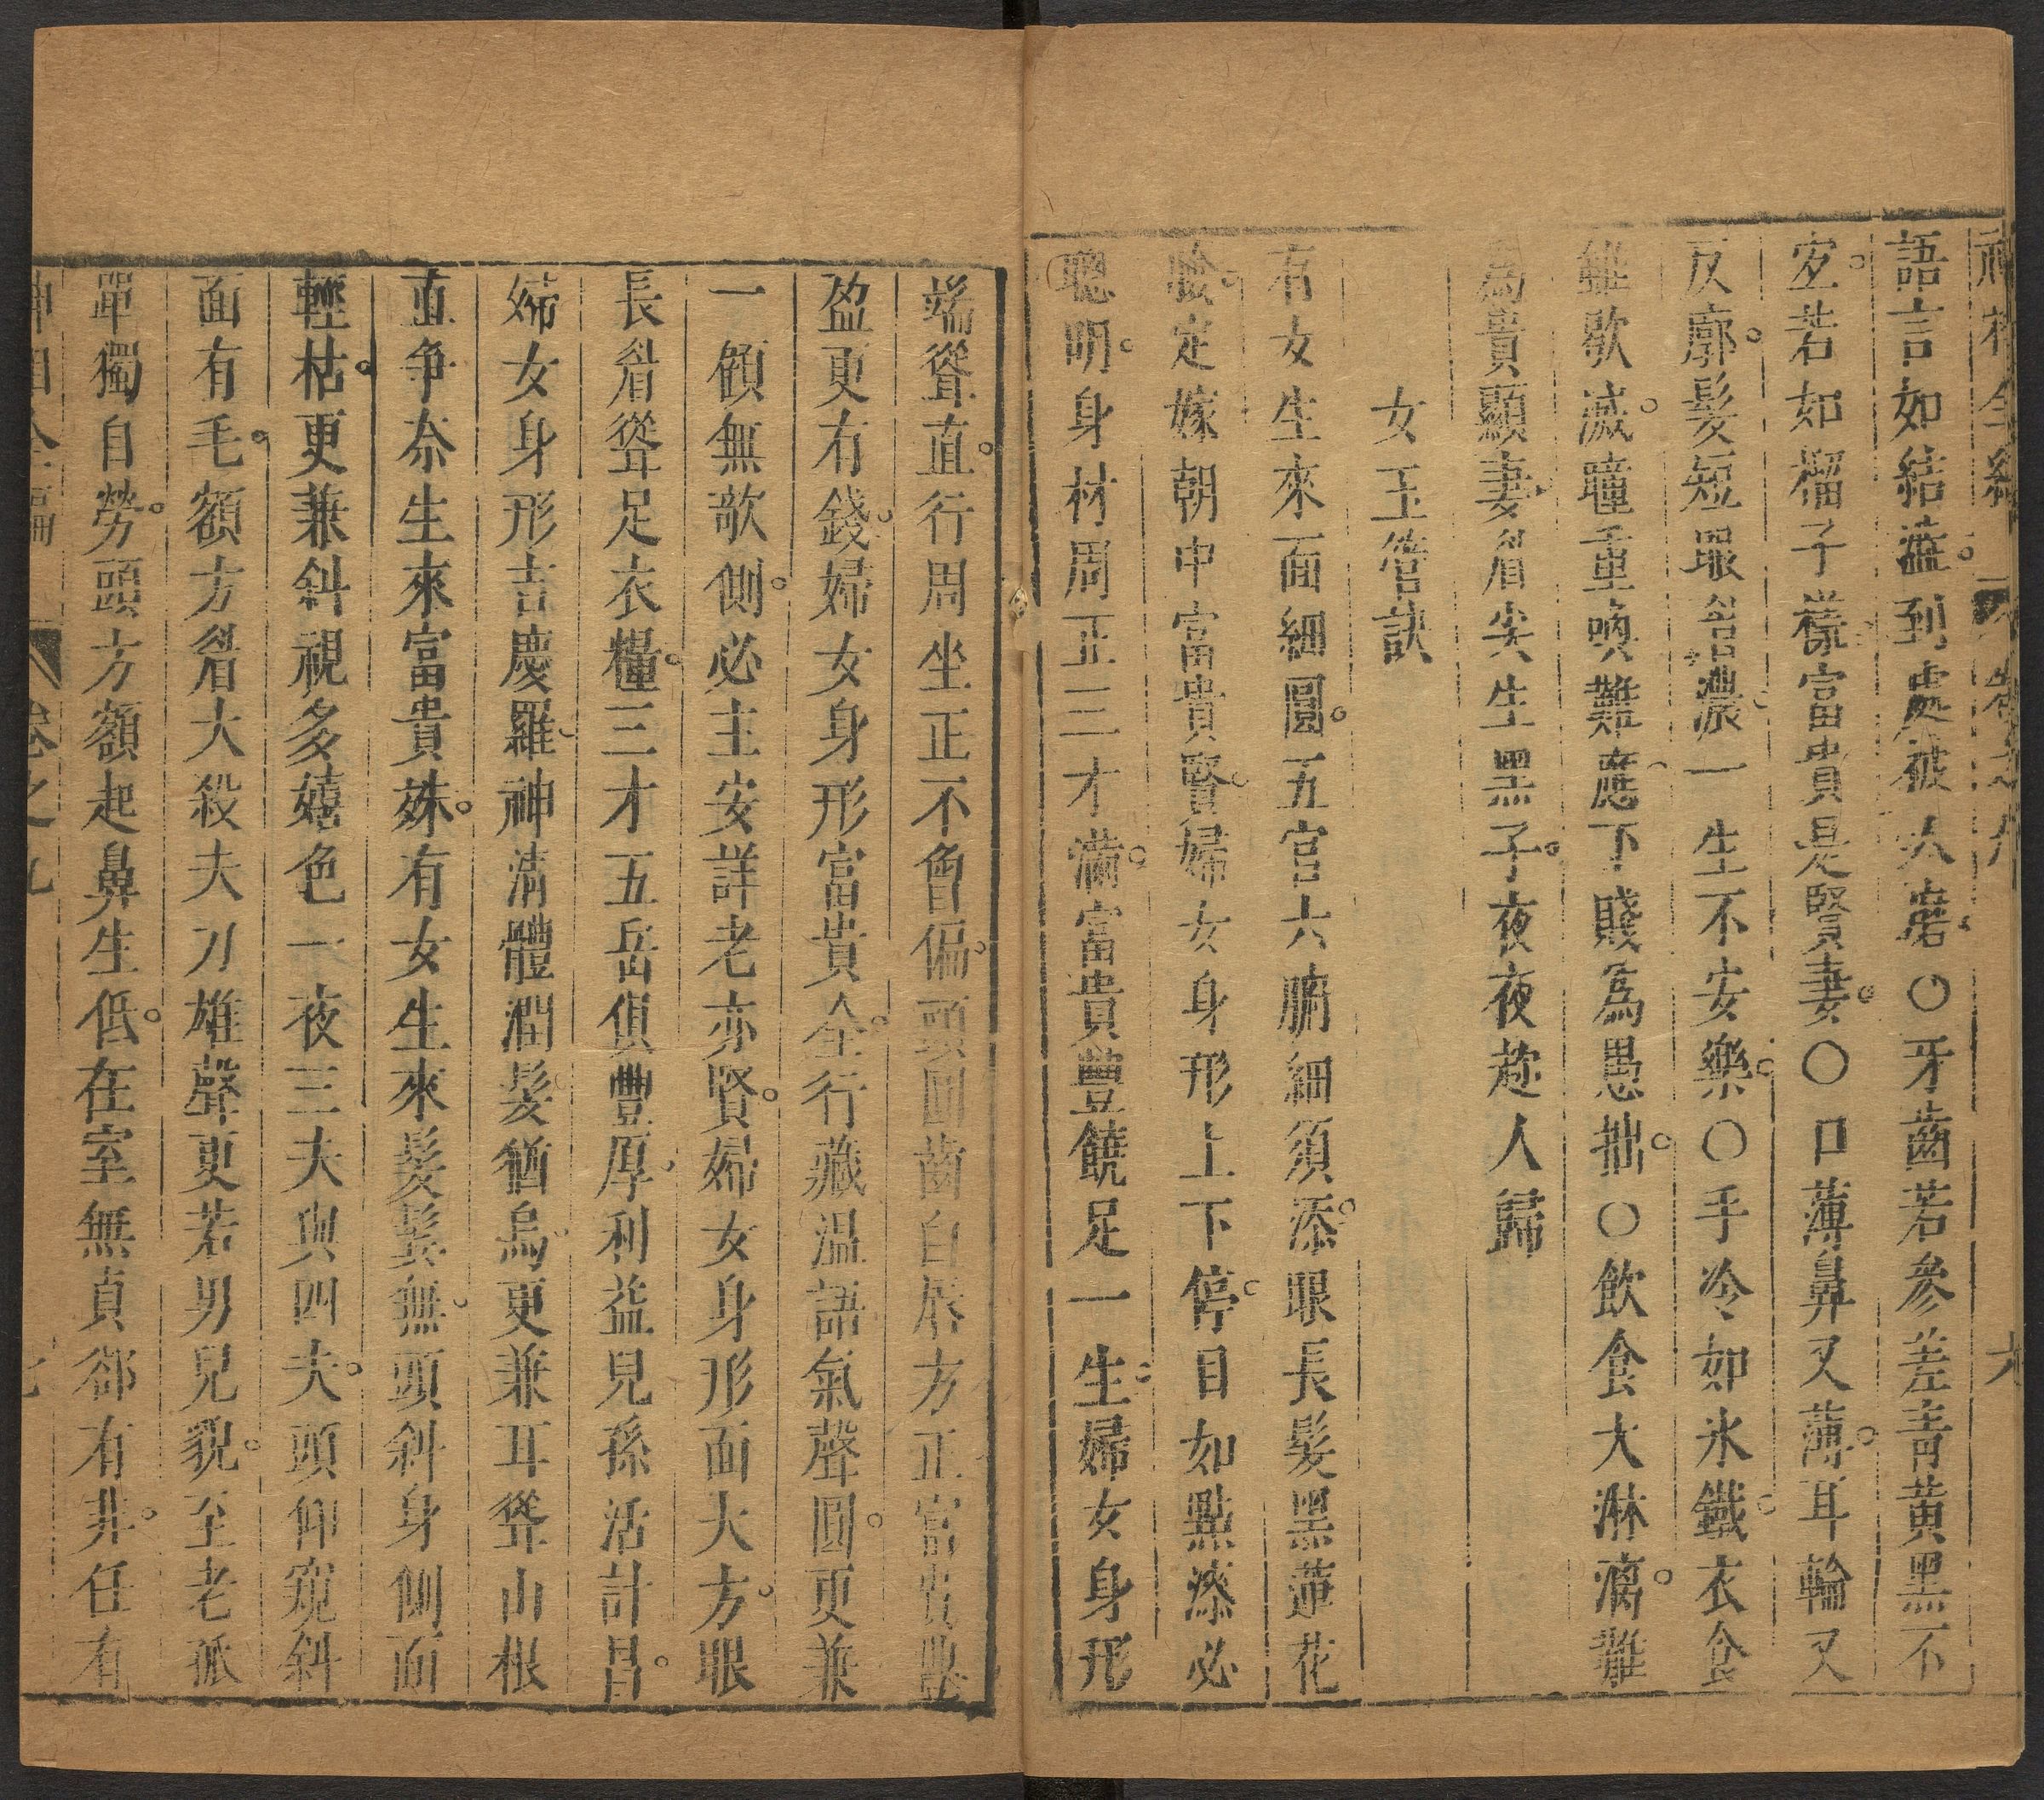 語言如結澁到處被人磨○牙齒若參差青黃黑不
定若如榴子様富貴是賢妻○口薄鼻又薄耳輪又
反廓髮短眼舀濃一生不安樂○手冷如氷鐵衣食
雖歇滅瞳重喚難應下賤為愚拙○飲食大淋漓難
為貴顯妻眉尖生黑子夜夜趂人歸
女玉管訣
有女生來面細圓五官六腑細須添眼長髮黑蓮花
臉定嫁朝中富貴賢婦女身形上下停目如點漆必
聰明身材周正三才滿富貴豊饒足一生婦女身形
端聳直行周坐正不會偏頭圓齒白唇方正富貴豔
盈更有錢婦女身形富貴全行藏温語氣聲圓更兼
一顧無欹側必主安詳老亦賢婦女身形面大方眼
長眉聳足衣糧三才五岳俱豐厚利益兒孫活計昌
婦女身形吉慶羅神清體潤髮猶烏更兼耳聳山根
直争奈生來富貴姝有女生來髮鬂無頭斜身側面
輕枯更兼斜視多嬉色一夜三夫與四夫頭仰窺斜
面有毛額方眉大殺夫刀雄聲更若男兒貌至老孤
單獨自勞頭方額起鼻生低在室無貞郤有非任有
卷之九